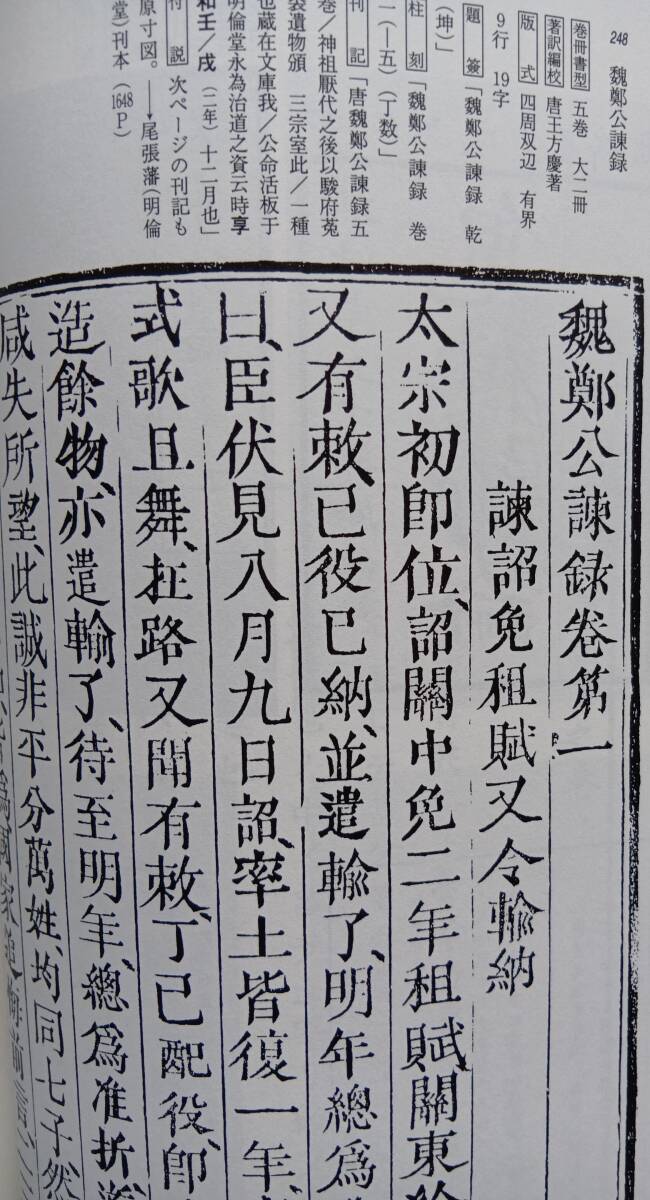 248 魏鄭公諫録
巻冊書型 五巻 大二冊
著訳編校 唐王方慶著
版式 四周双辺 有界
9行 19字
題簽「魏鄭公諫録 乾
(坤)」
柱刻「魏鄭公諫録 巻
一(—五)(丁数)」
刊記「唐魏鄭公諫録五
巻/神祖厭代之後以駿府菟
裘遺物頒 三宗室此/一種
也蔵在文庫我/公命活板于
明倫堂永為治道之資云時享
和壬/戌(二年)十二月也」
付説 次ページの刊記も
原寸図。→尾張藩(明倫
堂)刊本(1648P)
魏鄭公諫録卷第一
諫詔免租賦又令輸納
太宗初即位、詔關中免二年租賦、關東給
又有敕、已役已納、並遣輸了、明年總爲
曰、臣伏見八月九日詔、率土皆復一年、
式歌且舞、在路又聞有敕、丁已配役、即
造餘物、亦遣輸了、待至明年、總爲准折、
咸失所望、此誠非平分萬姓、均同七子、然